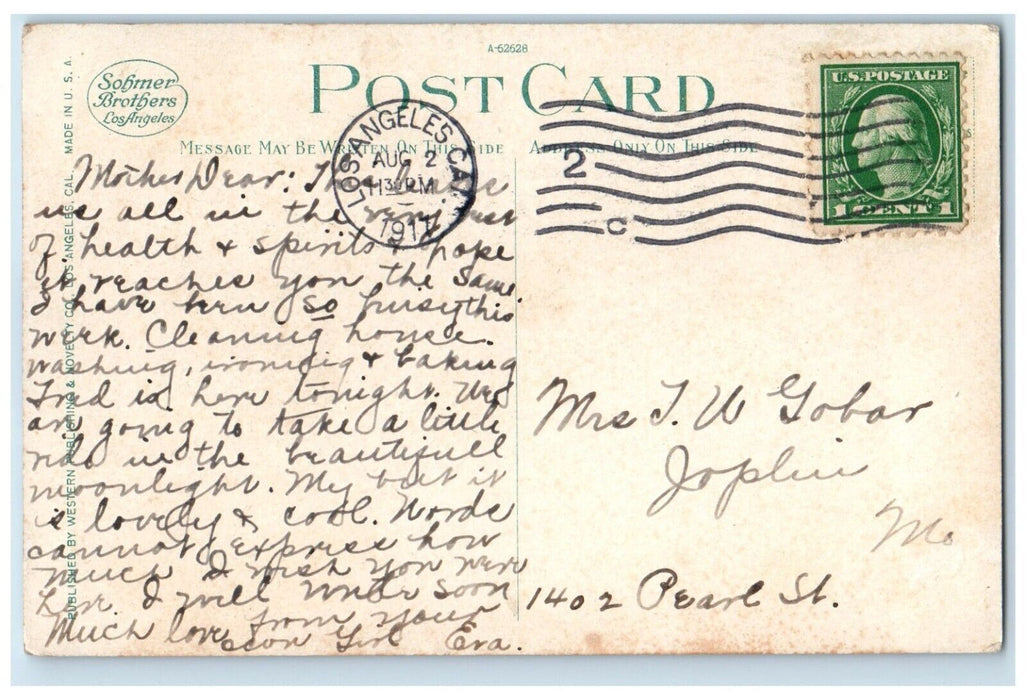 A-62628
POST CARD
Sohmer
Brothers
Los Angeles
U.S. POSTAGE
1 CENT 1
MESSAGE MAY BE WRITTEN ON THIS SIDE
ADDRESS ONLY ON THIS SIDE
LOS ANGELES, CAL.
AUG 2
11 30 PM
2
C
PUBLISHED BY WESTERN PUBLISHING & NOVELTY CO., LOS ANGELES, CAL. MADE IN U. S. A.
Mother Dear: This
us all in the very best
of health & spirits & hope
it reaches you the same.
I have been so busy this
week. Cleaning house.
washing, ironing & baking
Fred is here tonight. We
are going to take a little
ride in the beautifull
moonlight. My but it
is lovely & cool. Words
cannot express how
much I wish you were
here. I will write soon
Much love from your
own Girl Eva.
Mrs J. W Gobar
Joplin
Mo
1402 Pearl St.